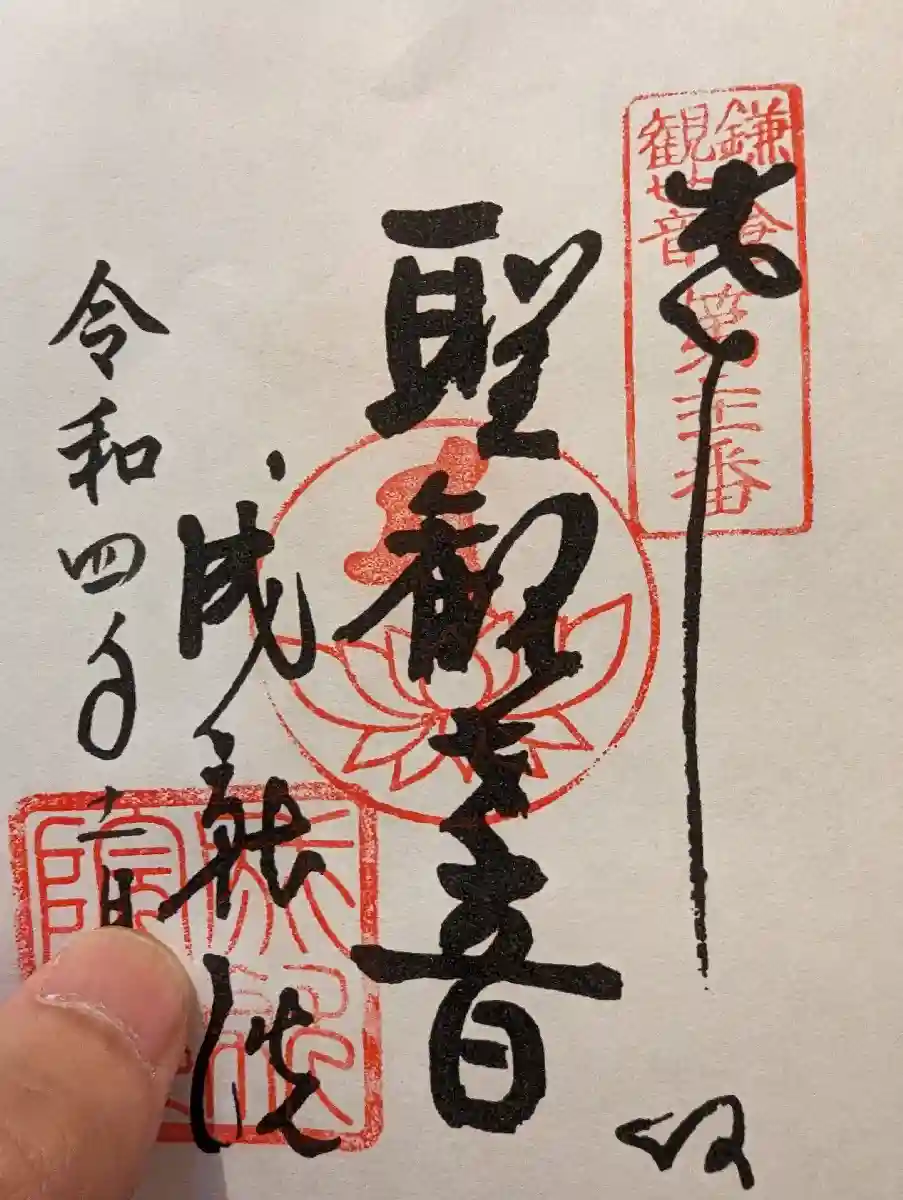 奉拝
鎌倉
観世音
第
番
聖観世音
成就院
令和四年